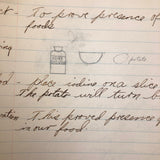 To prove presence of
foods
ing
place iodine on a slice
The potato will turn b
This proved presence
in our food.